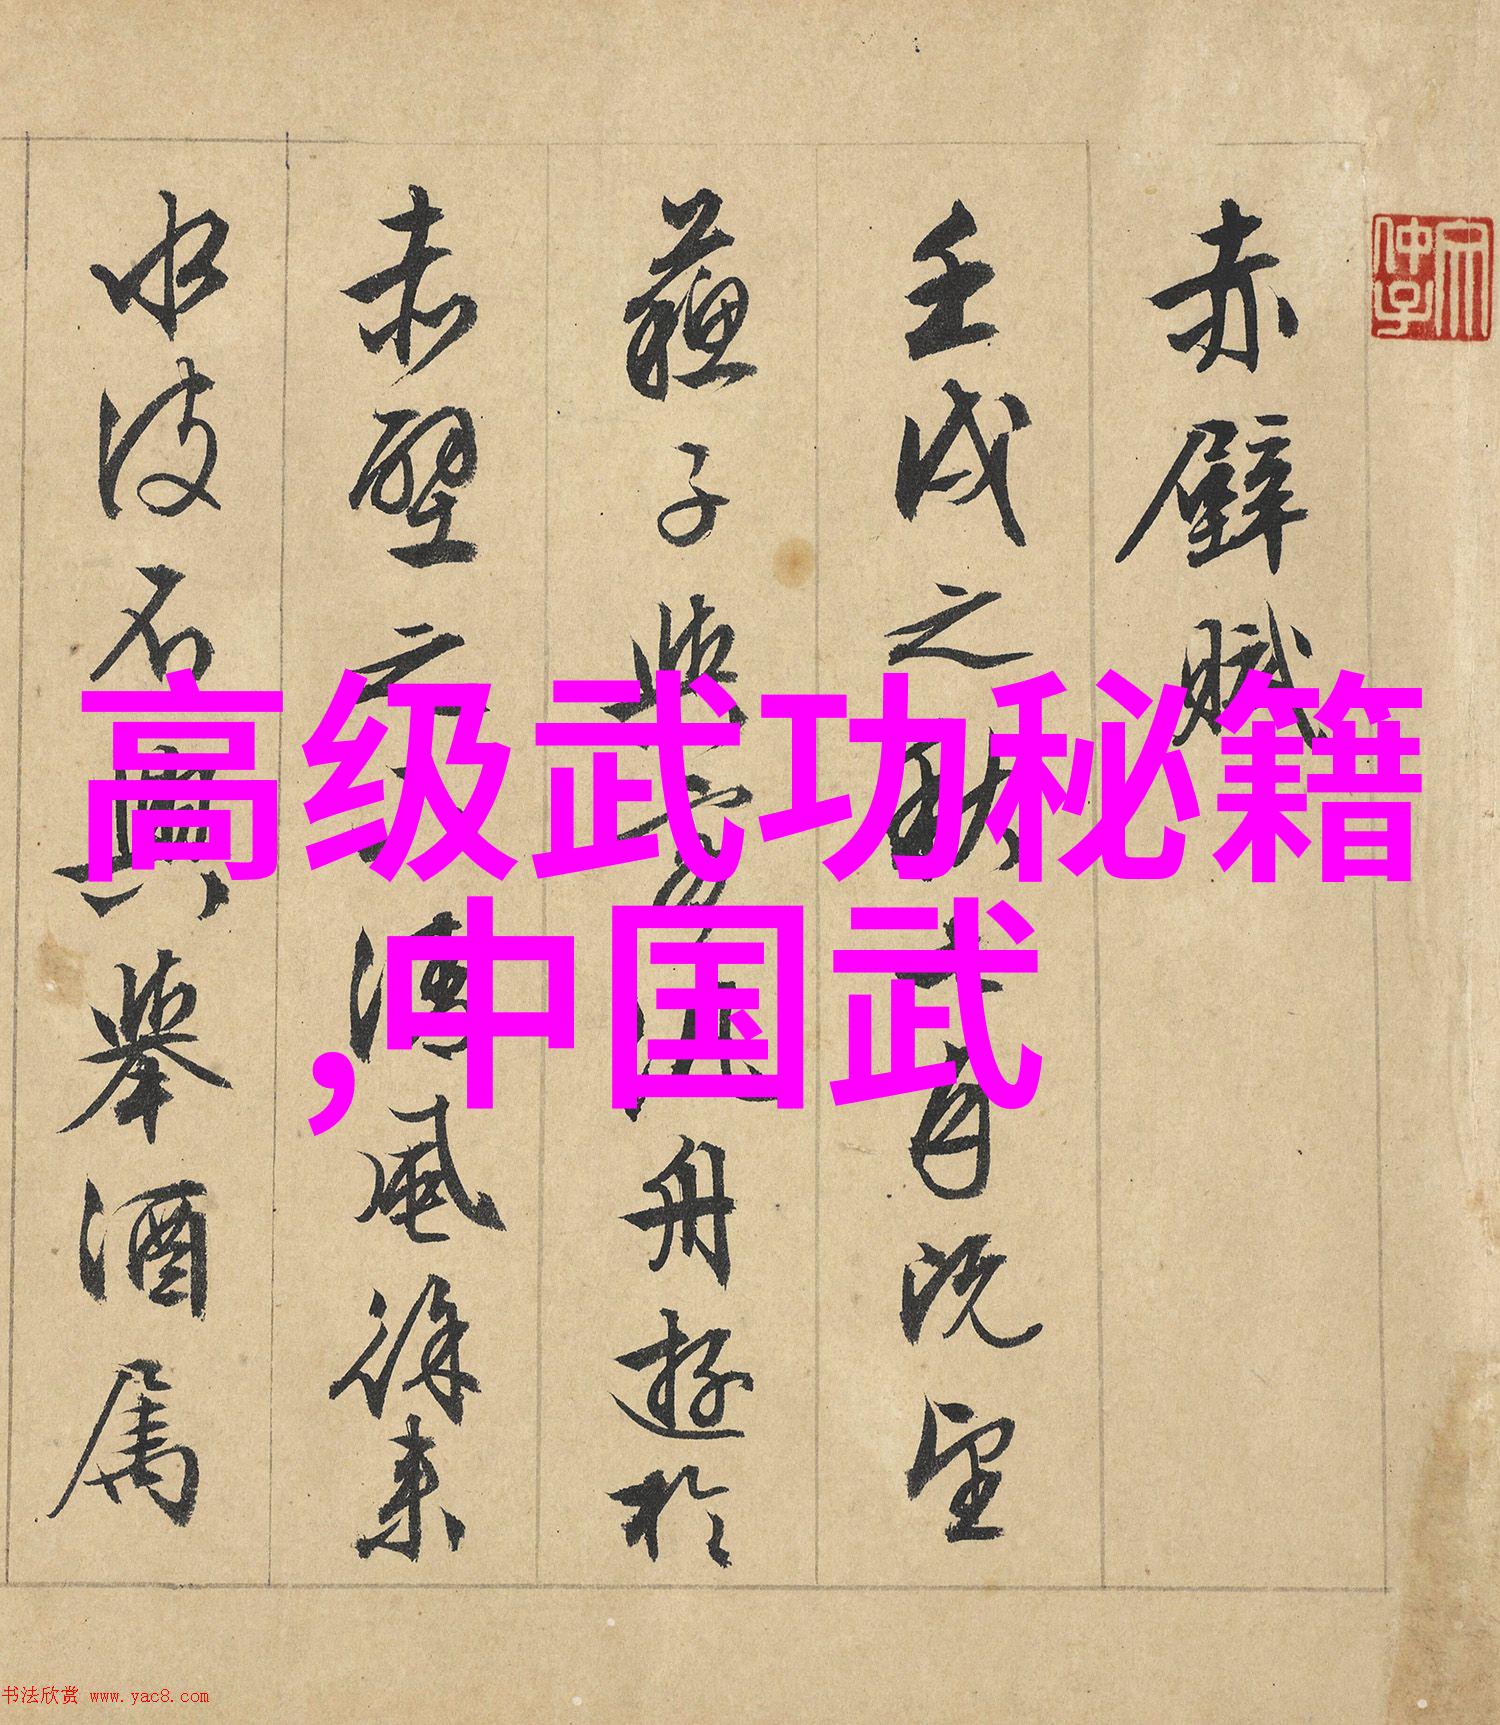 赤壁賦
壬戌之秋七月既望
蘇子與客泛舟遊於
赤壁之下清風徐来
水波不興舉酒属
高级武功秘籍
,中国武
书法欣赏 www.yac8.com